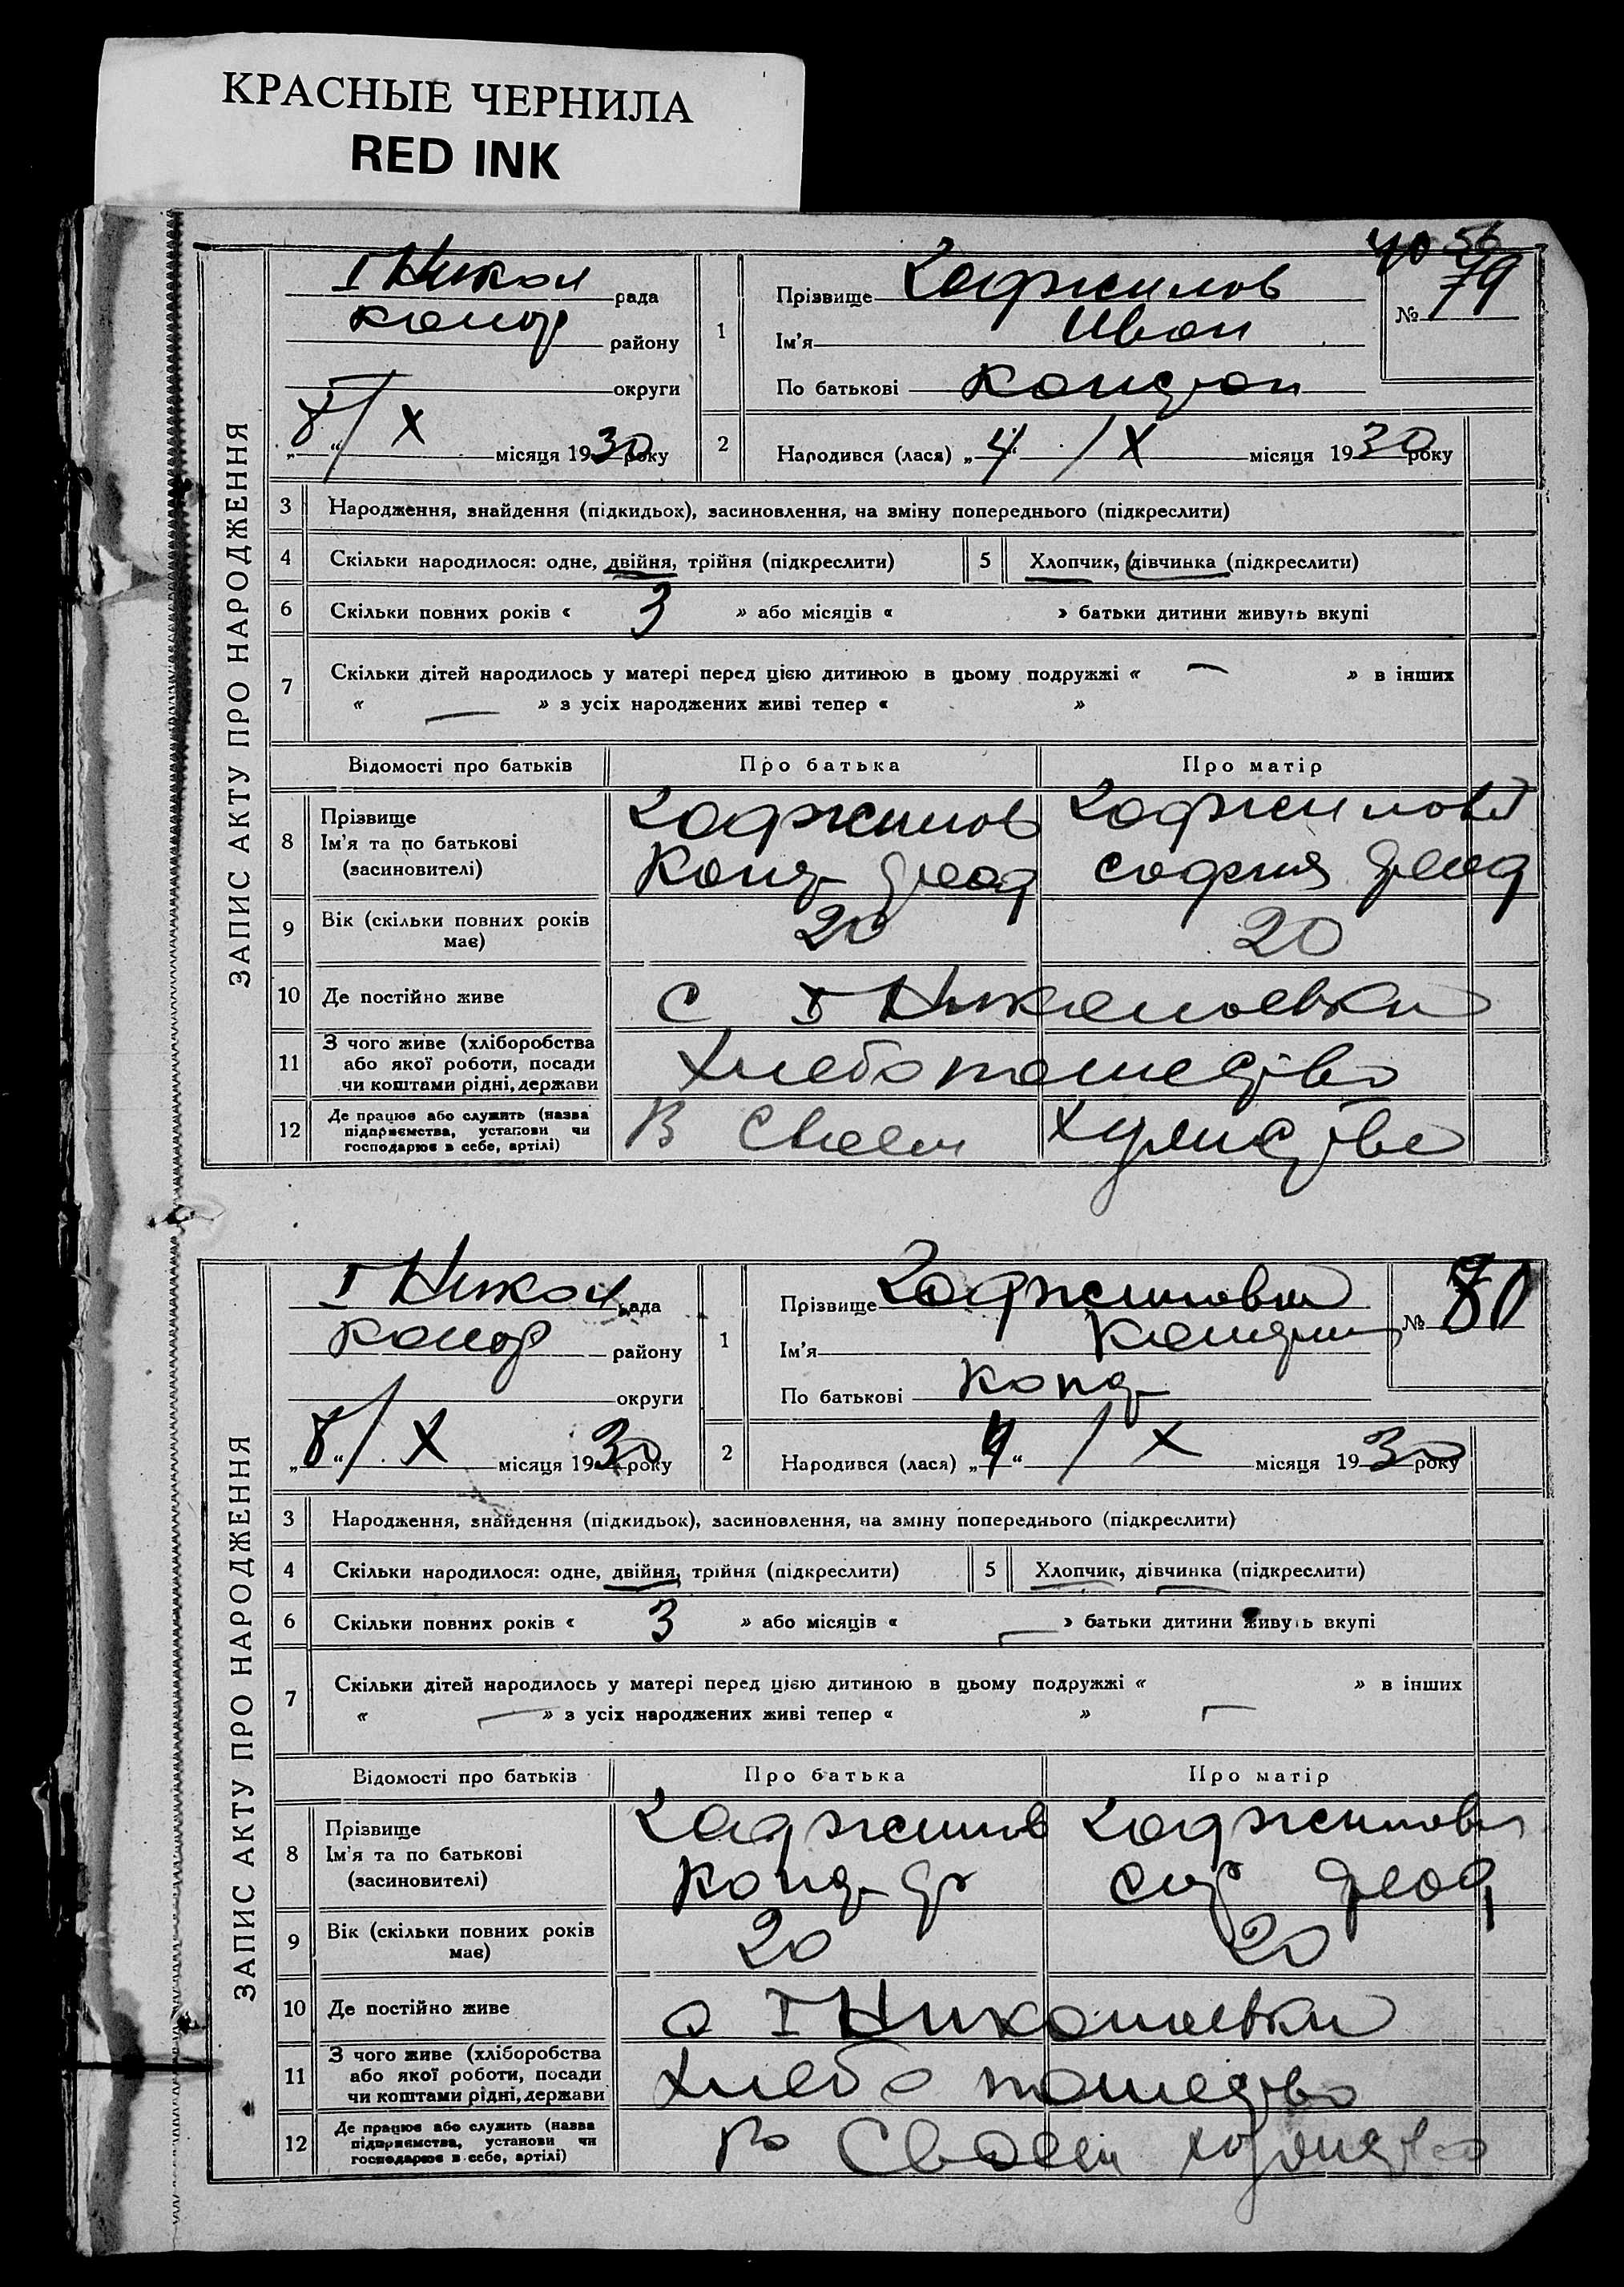 КРАСНЫЕ ЧЕРНИЛА
RED INK
40 56
ЗАПИС АКТУ ПРО НАРОДЖЕННЯ
I Никол рада
району
округи
8/X місяця 1930 року
1
Прізвище Хаджинов
Ім'я Иван
По батькові
№ 79
2
Народився (лася) „4“ / X місяця 1930 року
3 Народження, знайдення (підкидьох), засиновлення, на зміну попереднього (підкреслити)
4 Скільки народилося: одне, двійня, трійня (підкреслити) 5 Хлопчик, дівчинка (підкреслити)
6 Скільки повних років « 3 » або місяців « » батьки дитини живуть вкупі
7 Скільки дітей народилось у матері перед цією дитиною в цьому подружжі « — » в інших
« — » з усіх народжених живі тепер « »
Відомості про батьків Про батька Про матір
8 Прізвище
Ім'я та по батькові
(засиновителі)
Хаджинов
Конд Феод
Хаджинова
София Феод
9 Вік (скільки повних років має) 20 20
10 Де постійно живе С I Николаевки
11 З чого живе (хліборобства або якої роботи, посади чи коштами рідні, держави Хлебопашество
12 Де працює або служить (назва підприємства, установи чи господарює в себе, артілі) В своем
ЗАПИС АКТУ ПРО НАРОДЖЕННЯ
I Никол рада
району
округи
8/X місяця 1930 року
1
Прізвище Хаджинова
Ім'я
По батькові Конд
№ 80
2
Народився (лася) „4“ / X місяця 1930 року
3 Народження, знайдення (підкидьох), засиновлення, на зміну попереднього (підкреслити)
4 Скільки народилося: одне, двійня, трійня (підкреслити) 5 Хлопчик, дівчинка (підкреслити)
6 Скільки повних років « 3 » або місяців « — » батьки дитини живуть вкупі
7 Скільки дітей народилось у матері перед цією дитиною в цьому подружжі « » в інших
« — » з усіх народжених живі тепер « » —
Відомості про батьків Про батька Про матір
8 Прізвище
Ім'я та по батькові
(засиновителі)
Хаджинов
Конд
Хаджинова
Феод
9 Вік (скільки повних років має) 20 20
10 Де постійно живе с I Николаевки
11 З чого живе (хліборобства або якої роботи, посади чи коштами рідні, держави Хлебопашество
12 Де працює або служить (назва підприємства, установи чи господарює в себе, артілі) В Своем